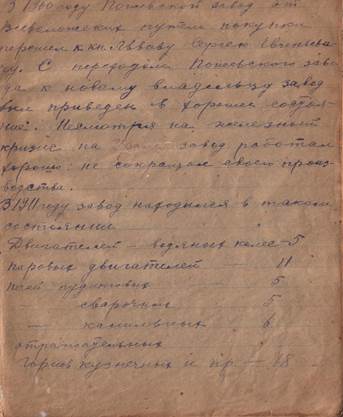 В 1900 году Пожевской завод от
Всеволожских путем покупки
перешел к кн. Львову Сергею Евгеньеви-
чу. С переходом Пожевского заво-
да к новому владельцу завод
был приведен в хорошее состоя-
ние. Несмотря на железный
кризис на завод работал
хорошо: не сокращал своего произ-
водства.
В году завод находился в таком
состоянии
Двигателей – водяных колес – 5
паровых двигателей — 11
печей пудлинговых — 5
сварочных – 5
— калильных – 6
отражательных
горнов кузнечных и пр. — 18